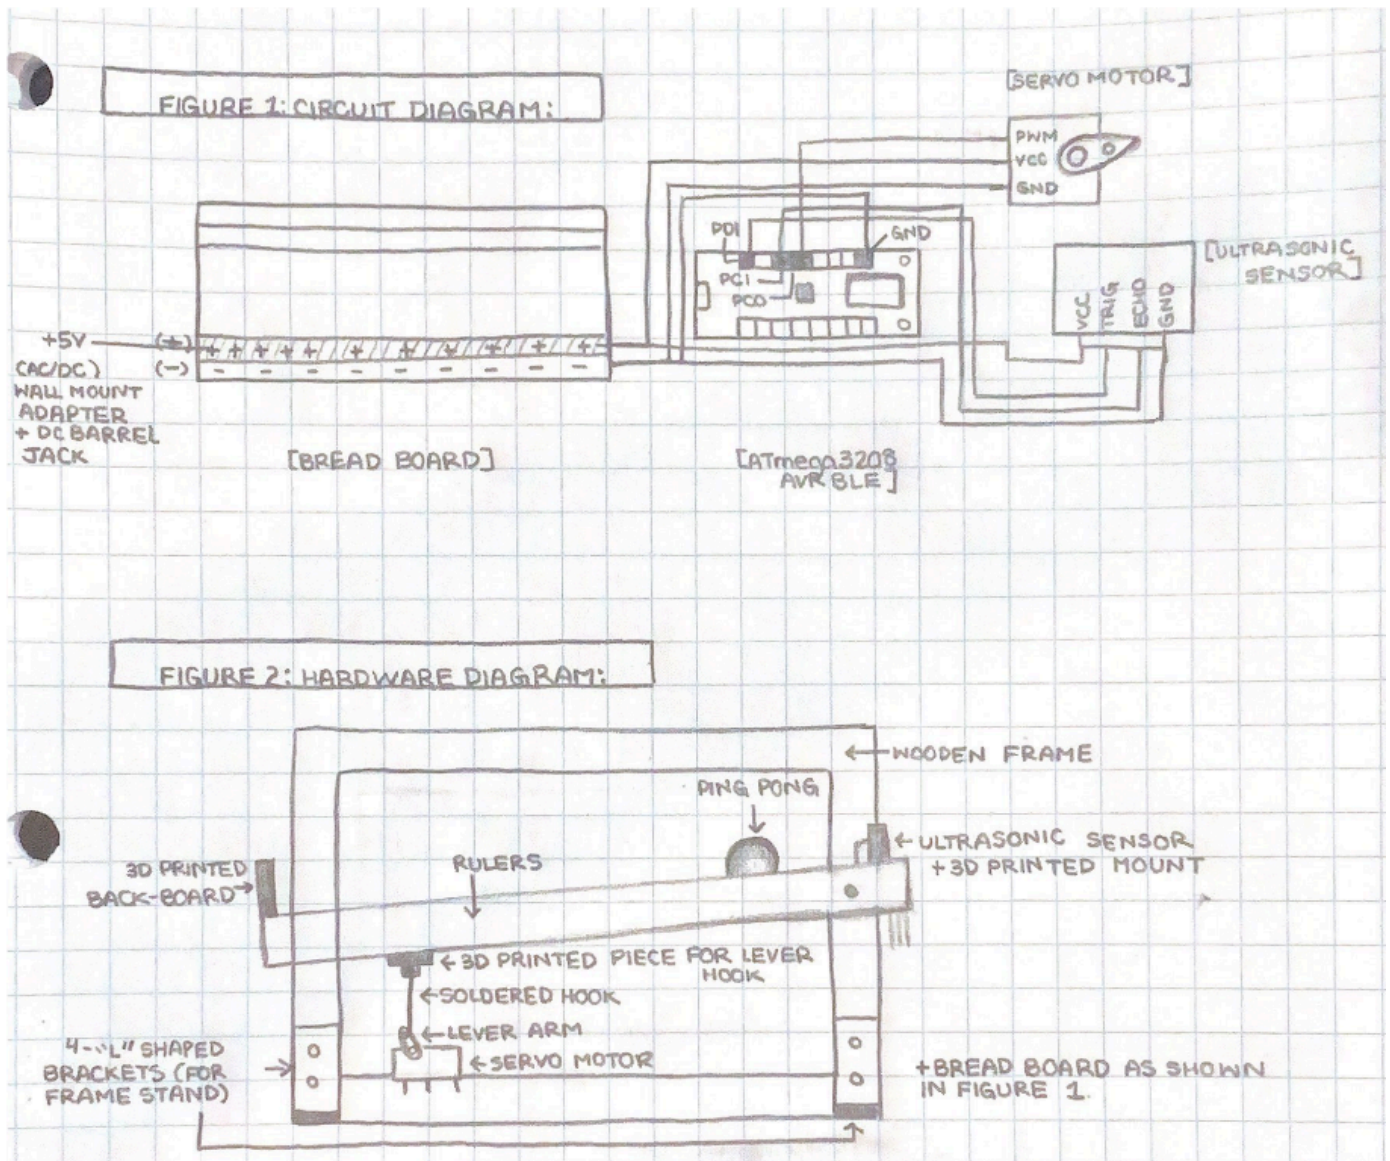 FIGURE 1: CIRCUIT DIAGRAM:
[SERVO MOTOR]
PWM
VCC
GND
PD1
GND
PC1
PC0
[ULTRASONIC
SENSOR]
VCC
TRIG
ECHO
GND
+5V
(+)
+ + + + + + + + + +
(-)
- - - - - - - - -
(AC/DC)
WALL MOUNT
ADAPTER
+ DC BARREL
JACK
[BREAD BOARD]
[ATmega3208
AVR BLE]
FIGURE 2: HARDWARE DIAGRAM:
WOODEN FRAME
PING PONG
ULTRASONIC SENSOR
+3D PRINTED MOUNT
3D PRINTED
BACK-BOARD
RULERS
3D PRINTED PIECE FOR LEVER
HOOK
SOLDERED HOOK
LEVER ARM
SERVO MOTOR
4-"L" SHAPED
BRACKETS (FOR
FRAME STAND)
+BREAD BOARD AS SHOWN
IN FIGURE 1.